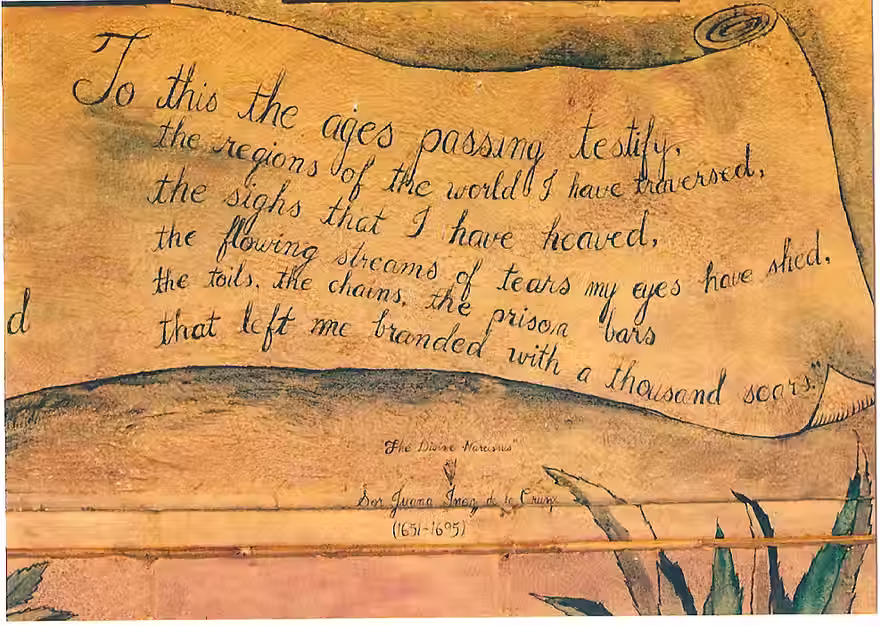 To this the ages passing testify,
the regions of the world I have traversed,
the sighs that I have heaved,
the flowing streams of tears my eyes have shed,
the toils, the chains, the prison bars
that left me branded with a thousand scars."
d
"The Divine Narcissus"
Sor Juana Inez de la Cruz
(1651-1695)